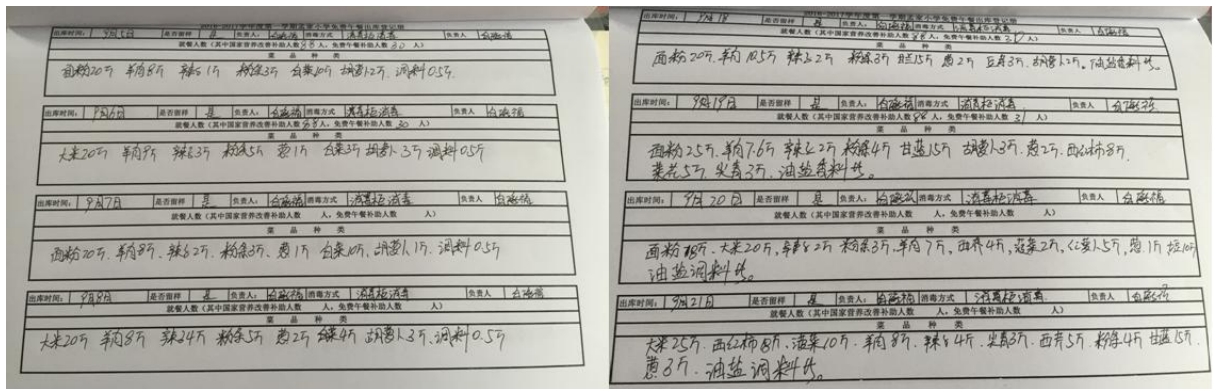 2016-2017学年度第一学期孟家小学免费午餐出库登记册
出库时间: 9月5日 是否留样 是 负责人: 消毒方式 消毒柜消毒 负责人
就餐人数(其中国家营养改善补助人数88人,免费午餐补助人数30人)
菜品种类
面粉20斤 羊肉8斤 辣子1斤 粉条3斤 白菜10斤 胡萝卜2斤. 调料0.5斤.
出库时间: 9月6日 是否留样 是 负责人: 消毒方式 消毒柜消毒 负责人
就餐人数(其中国家营养改善补助人数88人,免费午餐补助人数30人)
菜品种类
大米20斤 羊肉9斤 辣子3斤 粉条5斤 葱1斤 白菜3斤 胡萝卜3斤 调料0.5斤
出库时间: 9月7日 是否留样 是 负责人: 消毒方式 消毒柜消毒 负责人
就餐人数(其中国家营养改善补助人数 人,免费午餐补助人数 人)
菜品种类
面粉20斤. 羊肉8斤. 辣子2斤. 粉条3斤. 葱1斤 白菜10斤. 胡萝卜1斤. 调料0.5斤
出库时间: 9月8日 是否留样 是 负责人: 消毒方式 消毒柜消毒 负责人
就餐人数(其中国家营养改善补助人数 人,免费午餐补助人数 人)
菜品种类
大米20斤 羊肉8斤 辣子4斤 粉条5斤 葱2斤 白菜4斤 胡萝卜3斤. 调料0.5斤
2016-2017学年度第一学期孟家小学免费午餐出库登记册
出库时间: 9月18 是否留样 是 负责人: 消毒方式 消毒柜消毒 负责人
就餐人数(其中国家营养改善补助人数88人,免费午餐补助人数31人)
菜品种类
面粉20斤. 羊肉10.5斤 辣子2斤 粉条3斤 15斤 葱2斤 豆角3斤. 胡萝卜2斤。油盐调料等。
出库时间: 9月19日 是否留样 是 负责人: 消毒方式 消毒柜消毒 负责人
就餐人数(其中国家营养改善补助人数88人,免费午餐补助人数31人)
菜品种类
面粉25斤. 羊肉7.6斤 辣子2斤 粉条4斤 甘蓝15斤 胡萝卜3斤. 葱2斤. 西红柿8斤.
菜花5斤. 尖青3斤. 油盐香料等。
出库时间: 9月20日 是否留样 是 负责人: 消毒方式 消毒柜消毒 负责人
就餐人数(其中国家营养改善补助人数 人,免费午餐补助人数 人)
菜品种类
面粉18斤. 大米20斤, 辣子2斤 粉条3斤. 羊肉7斤, 西芹4斤, 菠菜2斤, 红萝卜5斤, 葱1斤 10斤
油盐调料等。
出库时间: 9月21日 是否留样 是 负责人: 消毒方式 消毒柜消毒 负责人
就餐人数(其中国家营养改善补助人数 人,免费午餐补助人数 人)
菜品种类
大米25斤. 西红柿8斤. 菠菜10斤. 羊肉8斤. 辣子4斤. 尖青3斤. 西芹5斤. 粉条4斤 甘蓝15斤.
葱3斤. 油盐调料等。